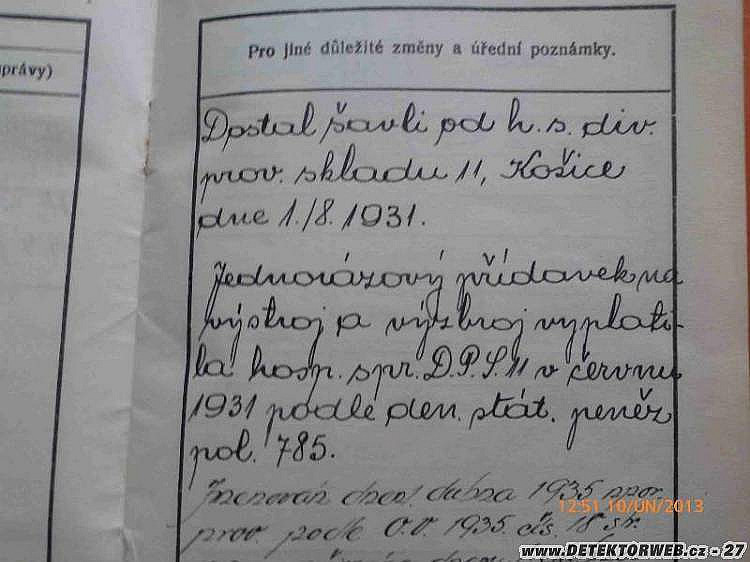 právy)
Pro jiné důležité změny a úřední poznámky.
Dostal šavli od h. s. div.
prov. skladu 11, Košice
dne 1./8. 1931.
Jednorázový přídavek na
výstroj a výzbroj vyplati-
la hosp. spr. D.P.S. 11 v červnu
1931 podle den. stát. peněz
pol. 785.
Jmenován dnem dubna 1935 npor.
prov. podle O.V. 1935 čís. 18 str.
12:51 10/ŪN/2013
www.DETEKTORWEB.cz - 27